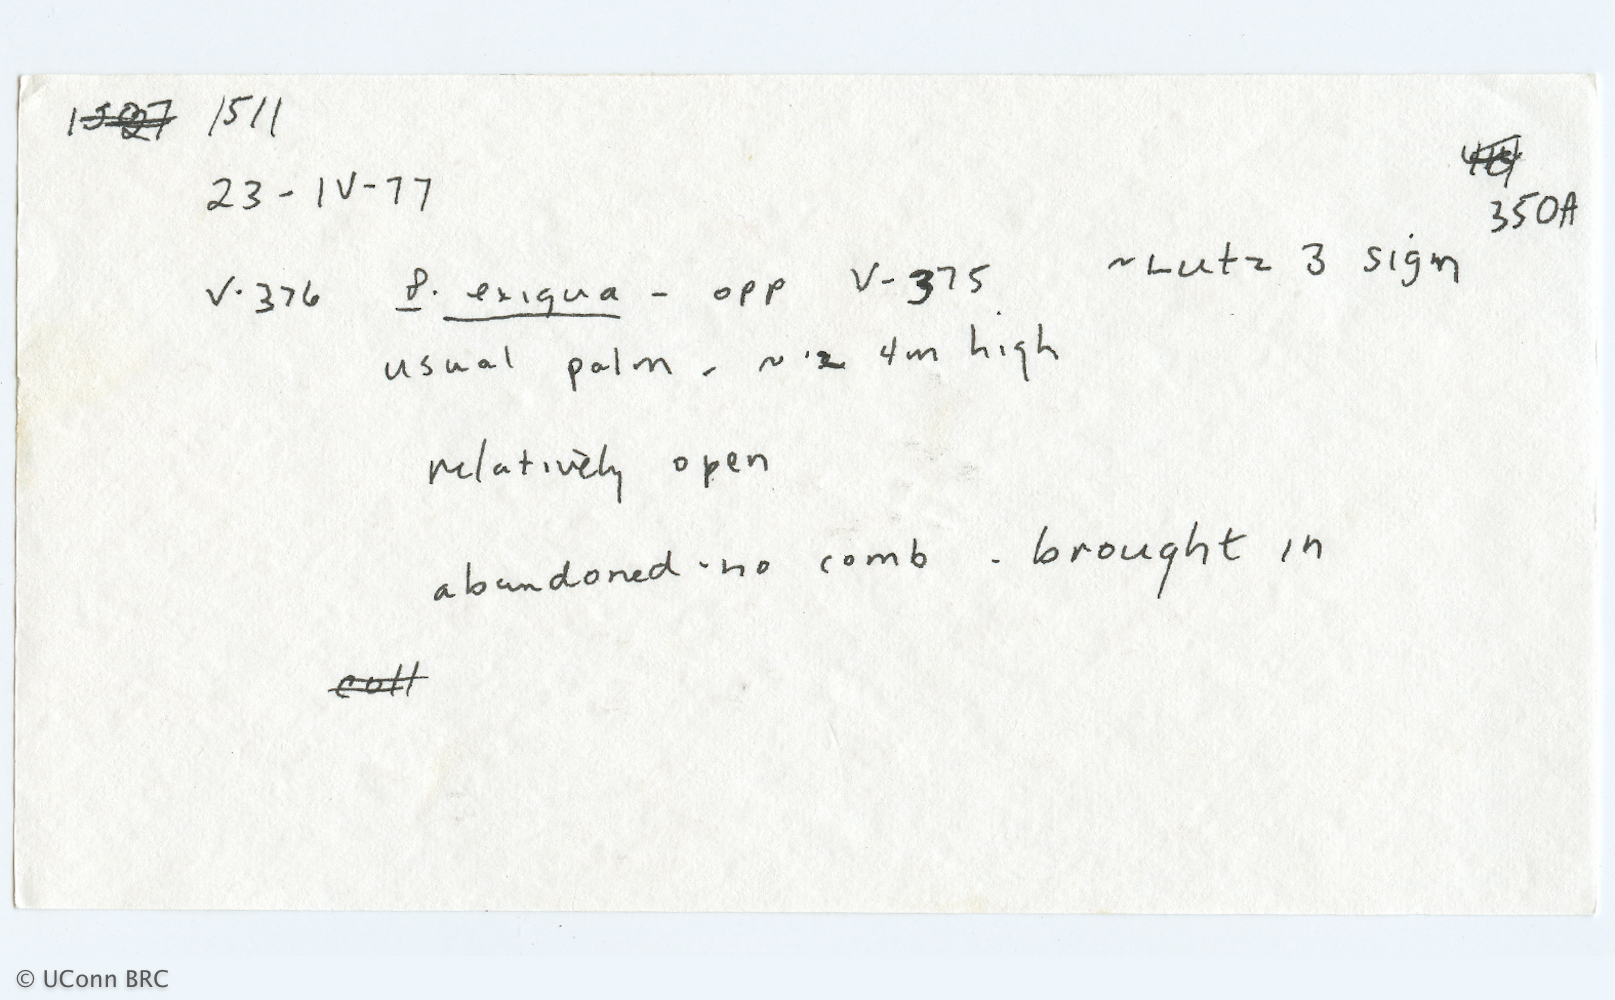 1511
350A
23-IV-77
V-376 P. exiqua - opp V-375 ~Lutz 3 sign
usual palm. ~ 4m high
relatively open
abandoned - no comb - brought in
coll
© UConn BRC